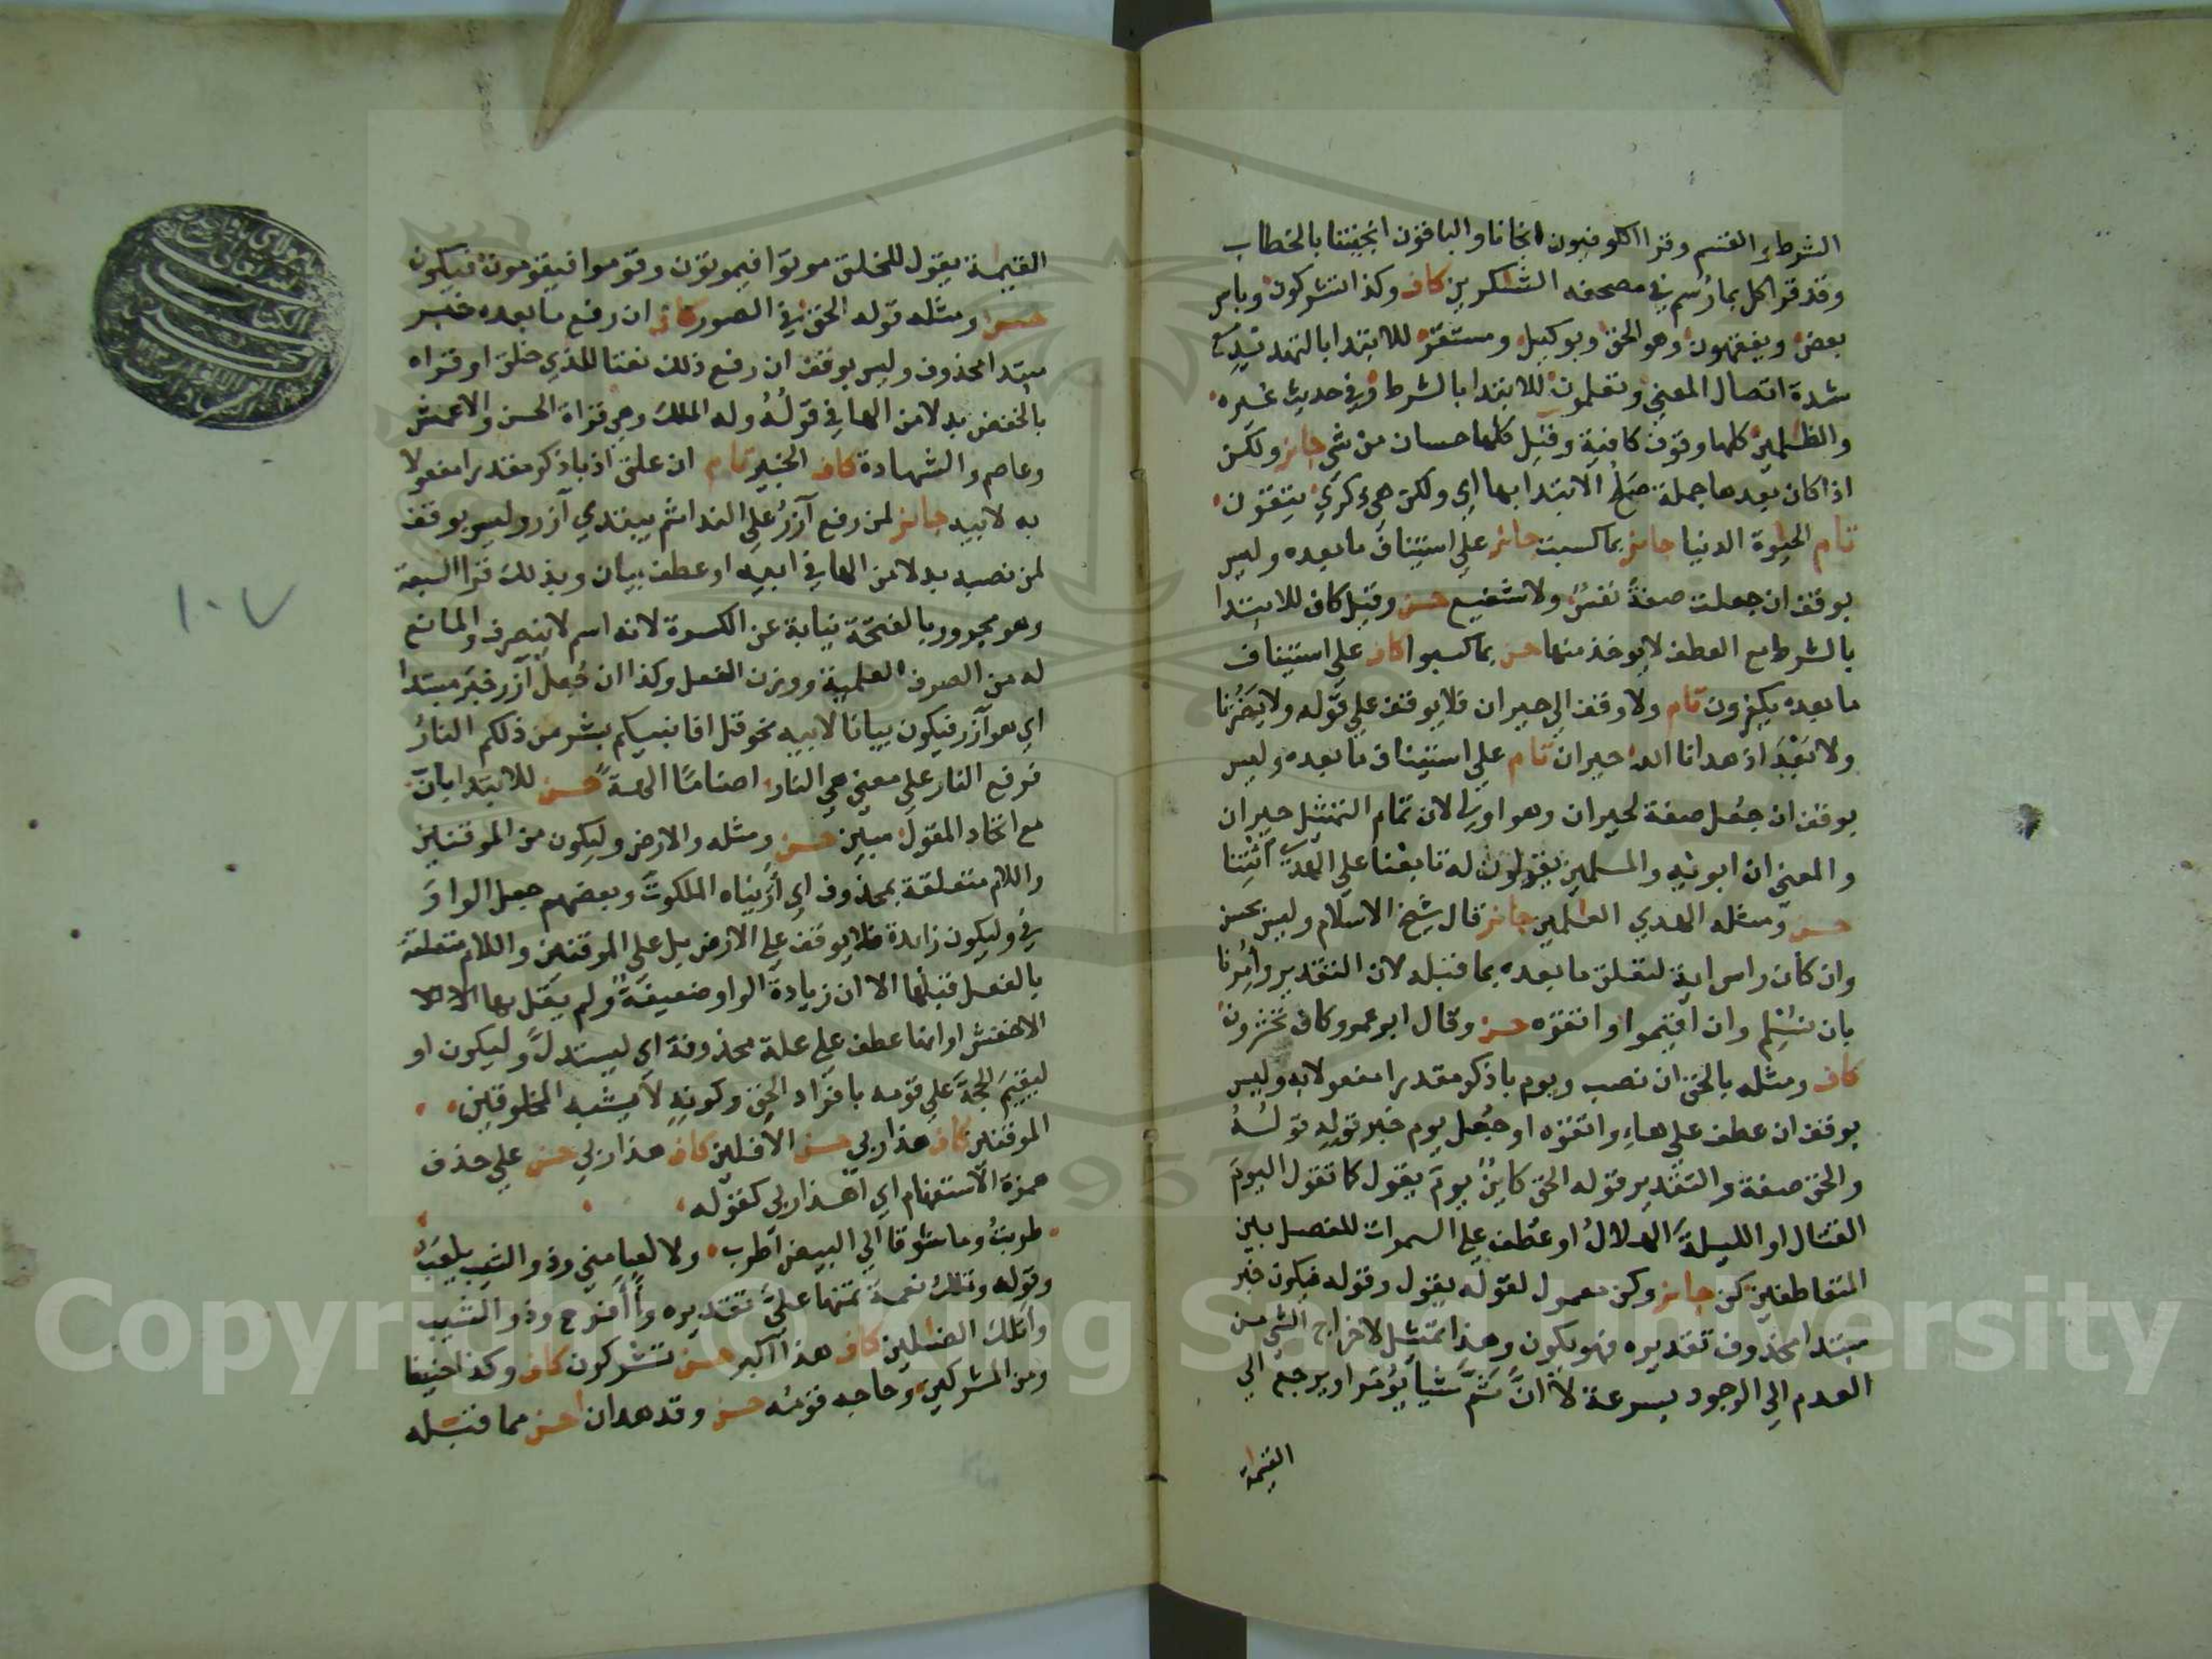 الشرط والقسم وقرا الكوفيون انجانا والباقون انجيتنا بالخطاب
وقد قرا كل بما رسم في مصحفه الشكرين كاف وكذا تشركون وباس
بعض ويفقهون وهو الحق وبوكيل ومستقر للابتدا بالتهديد مع
شدة اتصال المعني وتعلمون للابتدا بالشرط وفي حديث غيره
والظلمين كلها وقوف كافية وقيل كلها حسان من شي جايز ولكن
اذا كان بعدها جملة صلح الابتدا بها اي ولكن هي ذكري يتقون
تام الحيوة الدنيا جايز بما كسبت جايز علي استيناف ما بعده وليس
بوقف ان جعلت صفة نفس ولا شفيع حسن وقيل كاف للابتدا
بالشرط مع العطف لا يوخذ منها حسن بما كسبوا كاف علي استيناف
ما بعده يكفرون تام ولا وقف الي حيران فلا يوقف علي قوله ولا يضرنا
ولا بعد اذ هدانا الله حيران تام علي استيناف ما بعده وليس
بوقف ان جعل صفة لحيران وهو اولي لان تمام التمثيل حيران
والمعني ان ابويه والمسلمين يقولون له تابعنا علي الهدي ائتنا
حسن ومثله الهدي العلمين جايز قال شيخ الاسلام وليس بحسن
وان كان راس اية لتعلق ما بعده بما قبله لان التقدير وامرنا
بان نسلم وان اقيموا واتقوه حسن وقال ابو عمرو كاف تحشرون
كاف ومثله بالحق ان نصب ويوم باذكر مقدرا مفعولا به وليس
بوقف ان عطف علي هاء واتقوه او جعل يوم خبر قوله قوله
والحق صفة والتقدير قوله الحق كاين يوم يقول كما تقول اليوم
القتال او الليلة الهلال او عطف علي السموات للفصل بين
المتعاطفين كن جايز وكن معمول لقوله يقول وقوله فيكون خبر
مبتدا محذوف تقديره فهو يكون وهذا تمثيل لاخراج الشي من
العدم الي الوجود بسرعة لا ان ثم شيا يومر او يرجع الي
القيمة
القيمة يقول للخلق موتوا فيموتون وقوموا فيقومون فيكون
حسن ومثله قوله الحق في الصور كاف ان رفع ما بعده خبر
مبتدا محذوف وليس بوقف ان رفع ذلك نعتا للذي خلق او قراه
بالخفض بدلا من الها في قوله وله الملك وهي قراة الحسن والاعمش
وعاصم والشهادة كاف الخبير تام ان علق اذ باذكر مقدرا مفعولا
به لابيه جايز لمن رفع آزر علي الندا ثم يبتدي آزر وليس بوقف
لمن نصبه بدلا من الها في ابيه او عطف بيان وبذلك قرا السبعة
وهو مجرور بالفتحة نيابة عن الكسرة لانه اسم لا ينصرف والمانع
له من الصرف العلمية ووزن الفعل وكذا ان جعل آزر خبر مبتدا
اي هو آزر فيكون بيانا لابيه نحو قل افانبيكم بشر من ذلكم النار
فرفع النار علي معني هي النار اصناما الهة حسن للابتدا بان
مع اتحاد المقول مبين حسن ومثله والارض وليكون من الموقنين
واللام متعلقة بمحذوف اي أريناه الملكوت وبعضهم جعل الواو
في وليكون زايدة فلا يوقف علي الارض بل علي الموقنين واللام متعلقة
بالفعل قبلها الا ان زيادة الواو ضعيفة ولم يقل بها الا
الاخفش او انها عطف علي علة محذوفة اي ليستدل وليكون او
ليقيم الحجة علي قومه بافراد الحق وكونه لا يشبه المخلوقين
الموقنين كاف هذا ربي حسن الافلين كاف هذا ربي حسن علي حذف
همزة الاستفهام اي اهذا ربي كقوله
طربت وما شوقا الي البيض اطرب ولا لعبا مني وذو الشيب يلعب
وقوله وتلك نعمة تمنها علي تقديره وأ أفرح وذو الشيب
واتلك الضالين كاف هذا اكبر حسن تشركون كاف وكذا حنيفا
ومن المشركين وحاجه قومه حسن وقد هدان احسن مما قبله
١٠٧
Copyright © King Saud University
1957